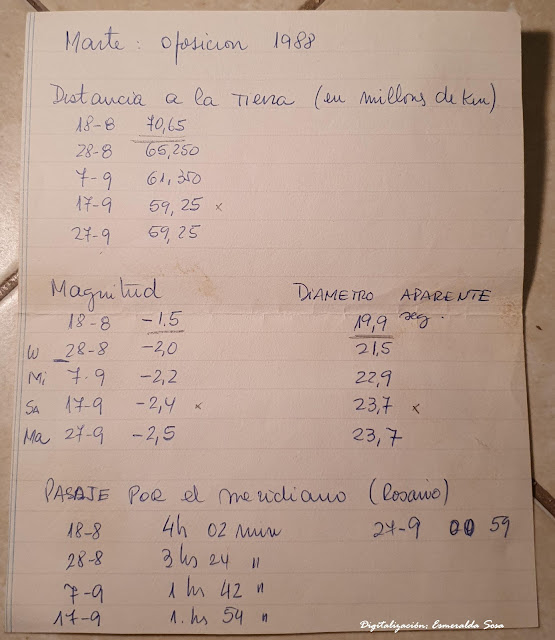 Marte: oposicion 1988
Distancia a la Tierra (en millons de Km)
18-8 70,65
28-8 65,250
7-9 61,350
17-9 59,25 x
27-9 59,25
Magnitud DIAMETRO APARENTE
seg.
18-8 -1.5 19,9
28-8 -2,0 21,5
Mi 7-9 -2,2 22,9
SA 17-9 -2,4 x 23,7 x
Ma 27-9 -2,5 23,7
PASAJE POR el meridiano (Rosario)
18-8 4h 02 min 27-9 00 59
28-8 3 hs 24 "
7-9 1 hs 42 "
17-9 1. hs 54 "
Digitalización: Esmeralda Sosa